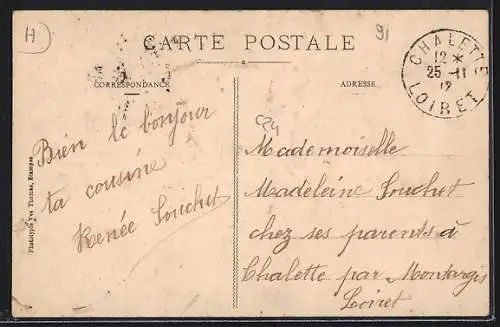 H
91
CARTE POSTALE
CORRESPONDANCE
ADRESSE
CHALETTE
12 *
25 - 11
12
LOIRET
Bien le bonjour
ta cousine
Renée Souchet
Mademoiselle
Madeleine Souchet
chez ses parents à
Chalette par Montargis
Loiret
Phototypie Vve Thomas, Etampes